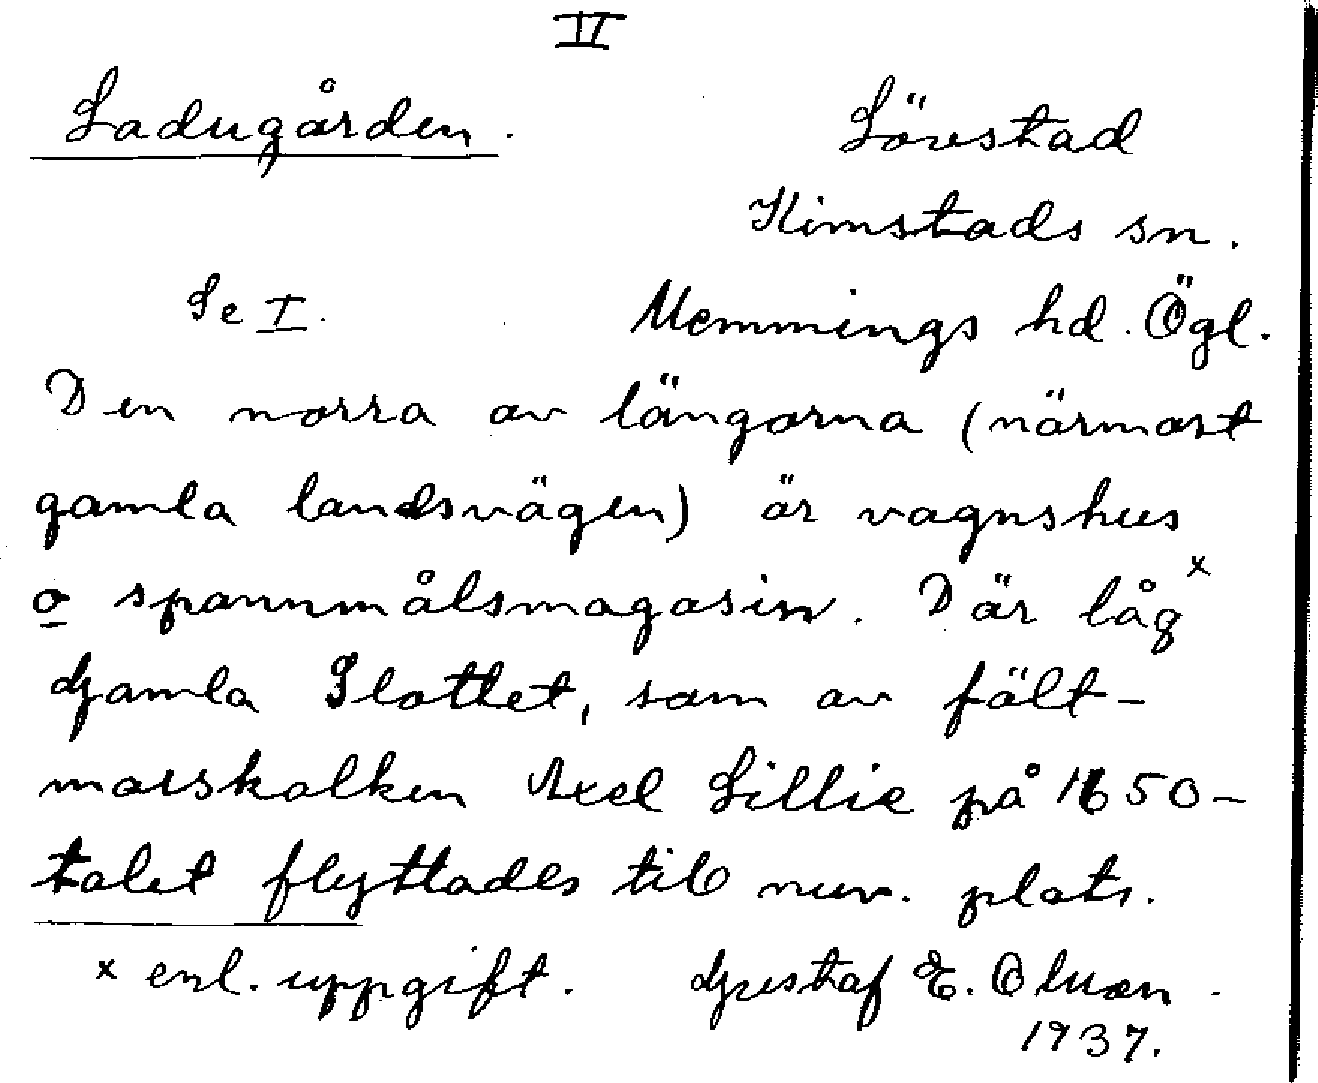 IV
Ladugården.
Lövestad
Kimstads sn.
Se I.
Memmings hd. Ögl.
Den norra av längorna (närmast
gamla landsvägen) är vagnshus
o spannmålsmagasin. Där låg x
Gamla Slottet, som av fält-
marskalken Axel Lillie på 1650-
talet flyttades till nuv. plats.
x enl. uppgift. Gustaf E. Olsson.
1937.